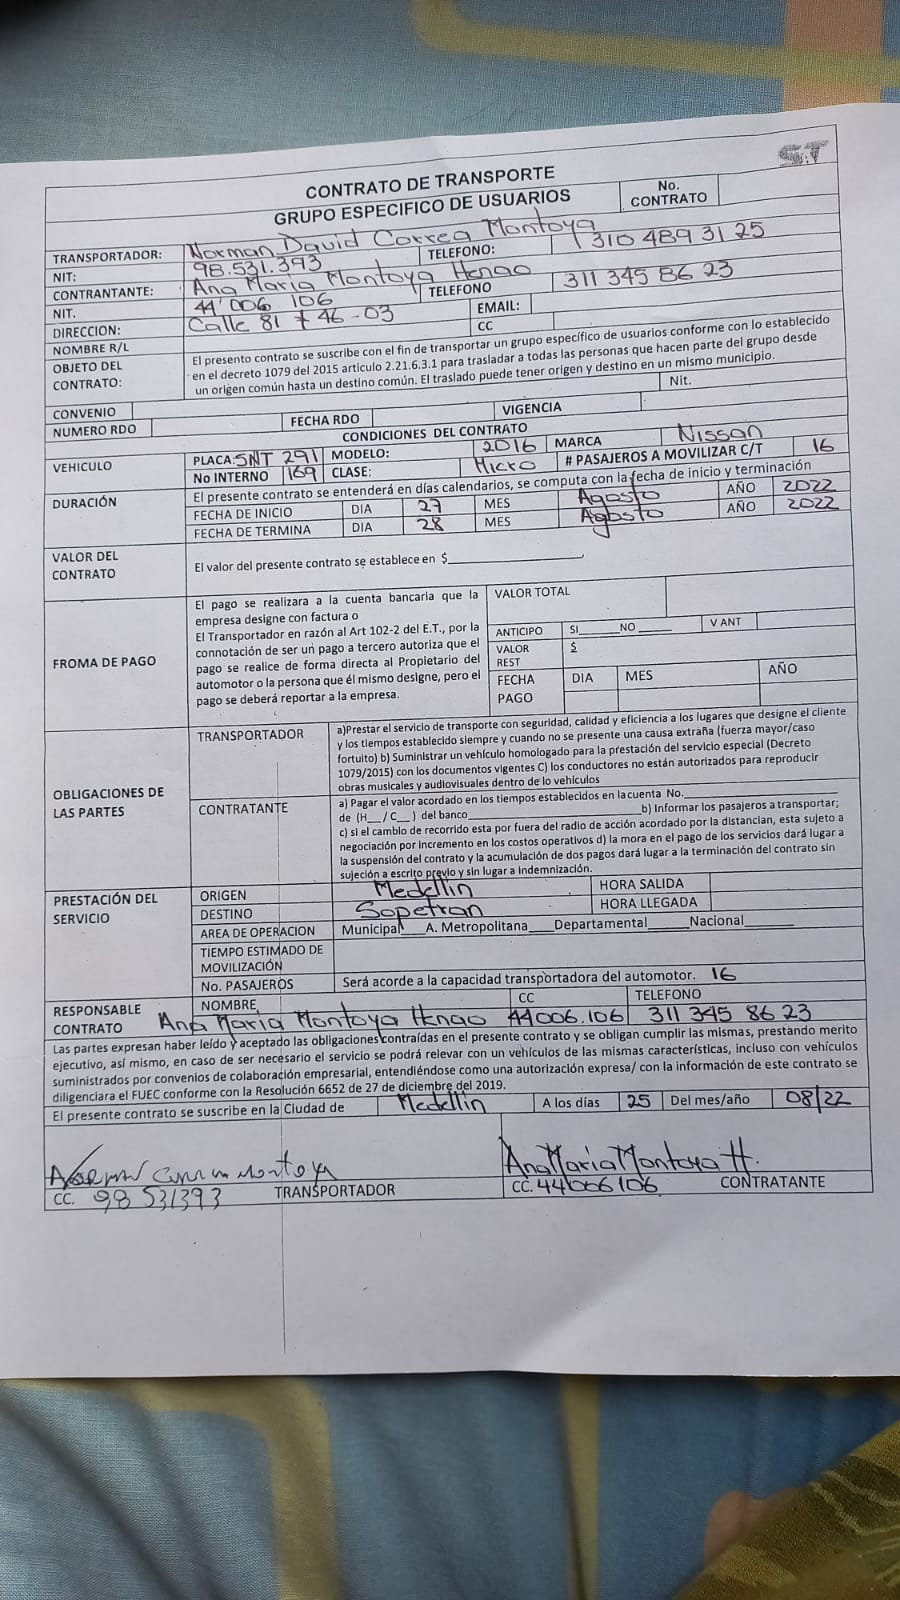 ST
CONTRATO DE TRANSPORTE
GRUPO ESPECIFICO DE USUARIOS
No. CONTRATO
TRANSPORTADOR: Norman David Correa Montoya
NIT: 98.531.393 TELEFONO: 310 489 31 25
CONTRANTANTE: Ana Maria Montoya Henao
NIT. 44'006 106 TELEFONO 311 345 86 23
DIRECCION: Calle 81 # 46-03 EMAIL:
NOMBRE R/L CC
OBJETO DEL CONTRATO: El presento contrato se suscribe con el fin de transportar un grupo específico de usuarios conforme con lo establecido
en el decreto 1079 del 2015 articulo 2.21.6.3.1 para trasladar a todas las personas que hacen parte del grupo desde
un origen común hasta un destino común. El traslado puede tener origen y destino en un mismo municipio.
CONVENIO Nit.
NUMERO RDO FECHA RDO VIGENCIA
CONDICIONES DEL CONTRATO
VEHICULO PLACA: SNT 291 MODELO: 2016 MARCA Nissan
No INTERNO 169 CLASE: Micro # PASAJEROS A MOVILIZAR C/T 16
DURACIÓN El presente contrato se entenderá en días calendarios, se computa con la fecha de inicio y terminación
FECHA DE INICIO DIA 27 MES Agosto AÑO 2022
FECHA DE TERMINA DIA 28 MES Agosto AÑO 2022
VALOR DEL CONTRATO El valor del presente contrato se establece en $
FROMA DE PAGO
El pago se realizara a la cuenta bancaria que la
empresa designe con factura o
El Transportador en razón al Art 102-2 del E.T., por la
connotación de ser un pago a tercero autoriza que el
pago se realice de forma directa al Propietario del
automotor o la persona que él mismo designe, pero el
pago se deberá reportar a la empresa.
VALOR TOTAL
ANTICIPO SI NO V ANT
VALOR REST $
FECHA PAGO DIA MES AÑO
OBLIGACIONES DE LAS PARTES
TRANSPORTADOR a)Prestar el servicio de transporte con seguridad, calidad y eficiencia a los lugares que designe el cliente
y los tiempos establecido siempre y cuando no se presente una causa extraña (fuerza mayor/caso
fortuito) b) Suministrar un vehículo homologado para la prestación del servicio especial (Decreto
1079/2015) con los documentos vigentes C) los conductores no están autorizados para reproducir
obras musicales y audiovisuales dentro de lo vehículos
CONTRATANTE a) Pagar el valor acordado en los tiempos establecidos en la cuenta No.
de (H__/C__) del banco b) Informar los pasajeros a transportar;
c) si el cambio de recorrido esta por fuera del radio de acción acordado por la distancian, esta sujeto a
negociación por incremento en los costos operativos d) la mora en el pago de los servicios dará lugar a
la suspensión del contrato y la acumulación de dos pagos dará lugar a la terminación del contrato sin
sujeción a escrito previo y sin lugar a indemnización.
PRESTACIÓN DEL SERVICIO
ORIGEN Medellin HORA SALIDA
DESTINO Sopetran HORA LLEGADA
AREA DE OPERACION Municipal___A. Metropolitana___Departamental___Nacional___
TIEMPO ESTIMADO DE MOVILIZACIÓN
No. PASAJEROS Será acorde a la capacidad transportadora del automotor. 16
RESPONSABLE CONTRATO NOMBRE CC TELEFONO
Ana Maria Montoya Henao 44006.106 311 345 86 23
Las partes expresan haber leído y aceptado las obligaciones contraídas en el presente contrato y se obligan cumplir las mismas, prestando merito
ejecutivo, así mismo, en caso de ser necesario el servicio se podrá relevar con un vehículos de las mismas características, incluso con vehículos
suministrados por convenios de colaboración empresarial, entendiéndose como una autorización expresa/ con la información de este contrato se
diligenciara el FUEC conforme con la Resolución 6652 de 27 de diciembre del 2019.
El presente contrato se suscribe en la Ciudad de Medellin A los días 25 Del mes/año 08/22
Norman Correa Montoya
Ana Maria Montoya H.
CC. 98 531393 TRANSPORTADOR
CC. 44006106 CONTRATANTE